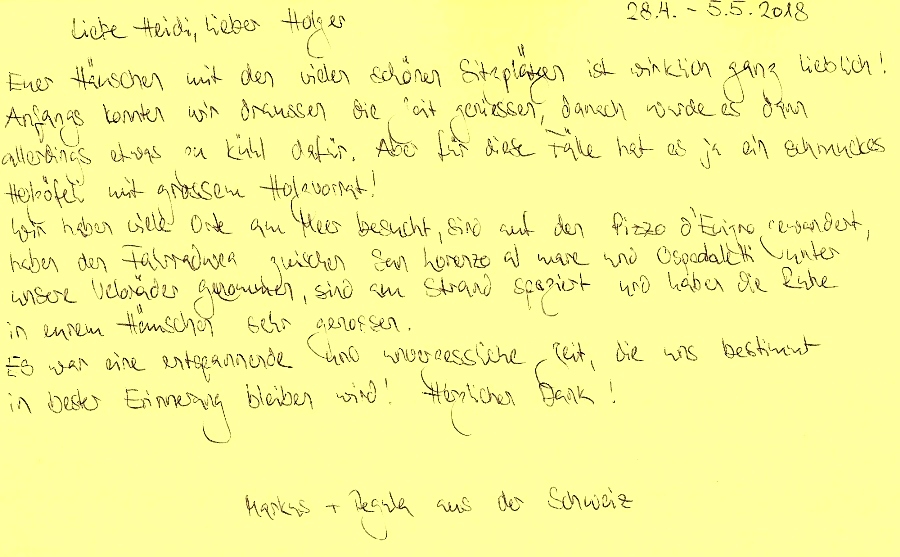 28.4. - 5.5.2018
Liebe Heidi, lieber Holger
Euer Häuschen mit den vielen schönen Sitzplätzen ist wirklich ganz lieblich!
Anfangs konnten wir draussen die Zeit geniessen, danach wurde es dann
allerdings etwas zu kühl dafür. Aber für diese Fälle hat es ja ein schmuckes
Holzöfeli mit grossem Holzvorrat!
Wir haben viele Orte am Meer besucht, sind auf den Pizzo d'Evigno gewandert,
haben den Fahrradweg zwischen San Lorenzo al mare und Ospedaletti unter
unsere Veloräder genommen, sind am Strand spaziert und haben die Ruhe
in eurem Häuschen sehr genossen.
Es war eine entspannende und unvergessliche Zeit, die uns bestimmt
in bester Erinnerung bleiben wird! Herzlichen Dank!
Markus + Regula aus der Schweiz